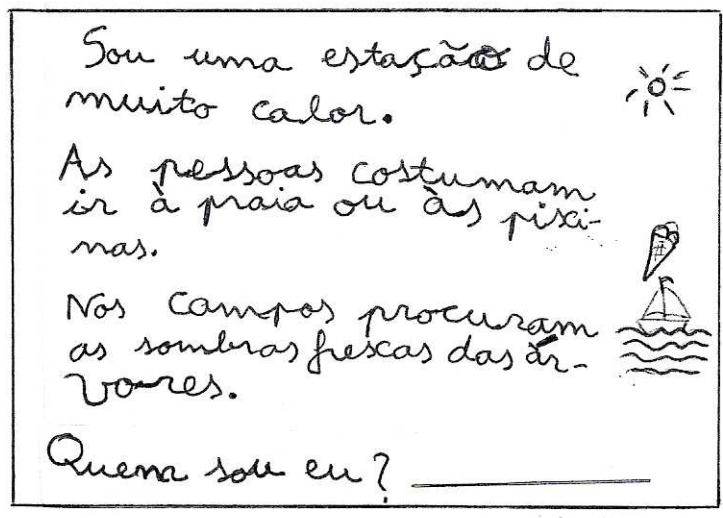 Sou uma estação de
muito calor.
As pessoas costumam
ir à praia ou às pisci-
nas.
Nos campos procuram
as sombras frescas das ár-
vores.
Quem sou eu?